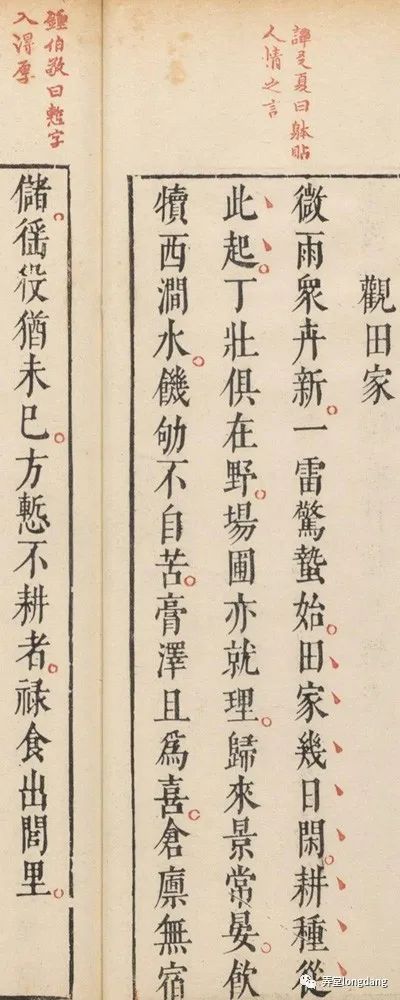 譚友夏曰躰貼
人情之言
觀田家
微雨衆卉新一雷驚蟄始田家幾日閑耕種從
此起丁壯俱在野場圃亦就理歸來景常晏飲
犢西澗水饑劬不自苦膏澤且爲喜倉廪無宿
鍾伯敬曰慙字
入得厚
儲徭役猶未巳方慙不耕者禄食出閭里
弄堂longdang